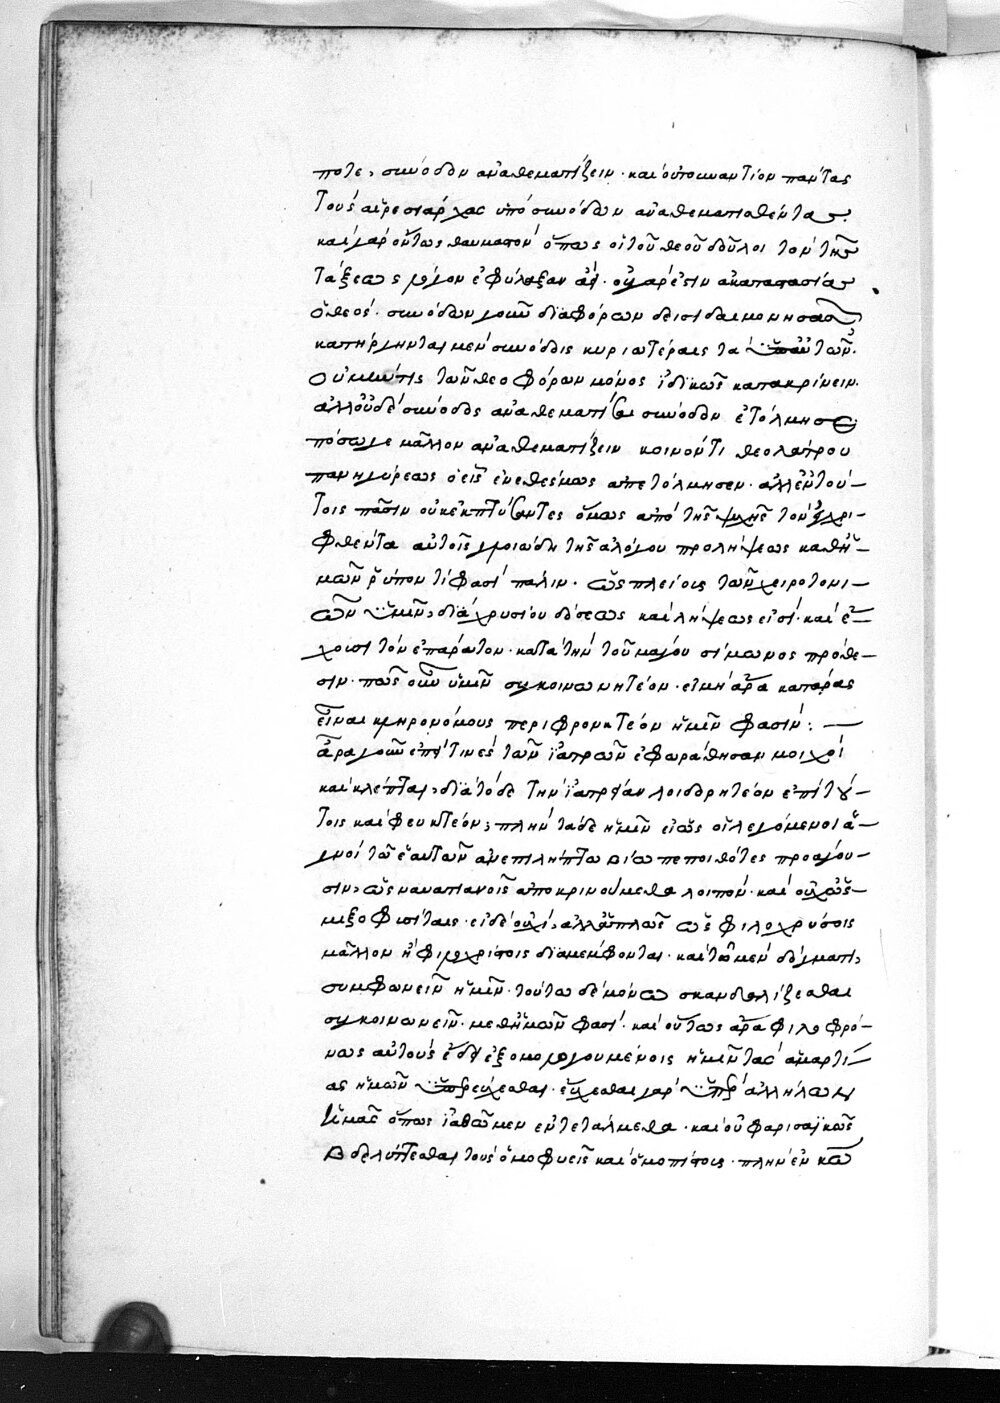 ποτε, σύνοδον ἀναθεματίζειν· καὶ οὑτοιναντίον πάντας
τοὺς αἱρεσιάρχας ὑπὸ συνόδων ἀναθεματισθέντας
καὶ γὰρ ὄντως θαυμαστὸν ὅπως οἱ τοῦ θεοῦ δοῦλοι τὸν τῆς
τάξεως λόγον ἐφύλαξαν ἀεί· οὐ γάρ ἐστιν ἀκαταστασίας
ὁ θεός· συνόδων γοῦν διαφόρων δεισιδαιμονησασ
κατήργηνται μὲν συνόδοις κυριωτέραις τὰ τούτων·
οὐ μὴν τίς τῶν θεοφόρων μόνος ἰδικῶς κατακρίνειν
ἀλλ' οὐδὲ σύνοδος ἀναθεματίσαι σύνοδον ἐτόλμησε
πόσω γε μᾶλλον ἀναθεματίζειν κοινόν τι θεολάτρου
πανηγύρεως ὁ εἷς ἐνθέσμως ἀπετόλμησεν· ἀλλ' ἐν τού-
τοις πᾶσιν οὐκ ἐκπτύσαντες ὅμως ἀπὸ τῆς ψυχῆς τὸν ἐγχρι-
φθέντα αὐτοῖς γλοιώδη τῆς ἀλόγου προλήψεως καθ' ἡ-
μῶν ῥύπον τί φασὶ πάλιν· ὡς πλείους τῶν χειροτονι-
ῶν ὑμῖν, διὰ χρυσίου δόσεως καὶ λήψεως εἰσί· καὶ ἔ-
χουσι τὸν ἐπάρατον· κατὰ τὴν τοῦ μάγου σίμωνος πρόθε-
σιν· πῶς οὖν ὑμῖν συγκοινωνητέον· εἰ μὴ ἄρα κατάρας
εἶναι κληρονόμους περιφρονητέον ἡμῖν φασίν: —
ἆρα γοῦν ἐπεί τινες τῶν ἰατρῶν ἐφωράθησαν μοιχοί
καὶ κλέπται, διὰ τόδε τὴν ἰατρείαν λοιδορητέον ἐπὶ τού-
τοις καὶ φευκτέον; πλὴν τάδε ἡμῖν εἰ ὡς οἱ λεγόμενοι ἁ-
γνοὶ τῶ ἑαυτῶν ἀνεπιλήπτω βίω πεποιθότες προάγου-
σιν, ὡς ναυατιανοῖς ἀποκρινούμεθα λοιπόν· καὶ οὐχ ὡς
μιξοφυσίταις· εἰ δὲ οὐχί, ἀλλ' ἁπλῶς ὡς φιλοχρύσοις
μᾶλλον ἢ φιλοχρίστοις διαμέμφονται· καὶ τῶ μὲν δόγματι,
συμφωνεῖν ἡμῖν· τούτω δὲ μόνω σκανδαλίζεσθαι
συγκοινωνεῖν· μεθ' ἡμῶν φασί· καὶ οὕτως ἄρα φιλοφρό-
νως αὐτοὺς ἔδει ἐξομολογουμένοις ἡμῖν τὰς ἁμαρτί-
ας ἡμῶν ὑπερεύχεσθαι· εὔχεσθαι γὰρ ὑπὲρ ἀλλήλων
ἡμᾶς ὅπως ἰαθῶμεν ἐντετάλμεθα· καὶ οὐ φαρισαϊκῶς
βδελύττεσθαι τοὺς ὁμοφυεῖς καὶ ὁμοπίστους· πλὴν ἐν